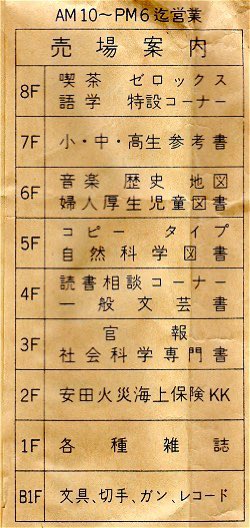 AM10～PM6迄営業
売場案内
8F 喫茶 ゼロックス
語学 特設コーナー
7F 小・中・高生参考書
6F 音楽 歴史 地図
婦人厚生児童図書
5F コピー タイプ
自然科学図書
4F 読書相談コーナー
一般文芸書
3F 官報
社会科学専門書
2F 安田火災海上保険KK
1F 各種雑誌
B1F 文具、切手、ガン、レコード